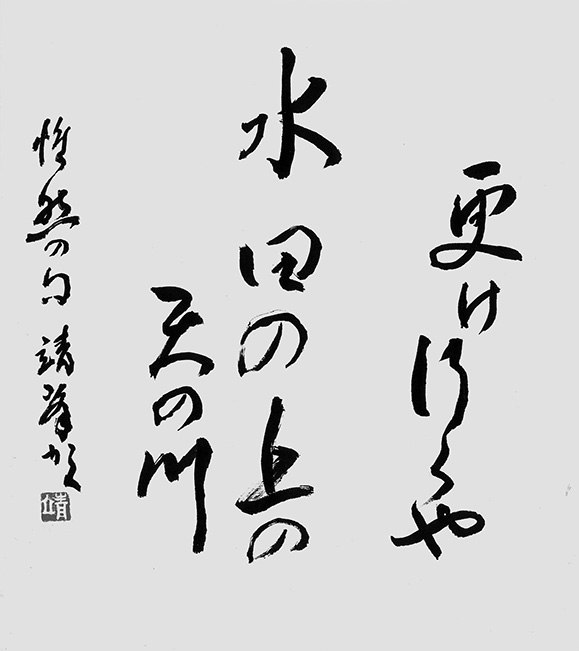 更け行くや
水田の上の
天の川
惟然の句 靖
靖